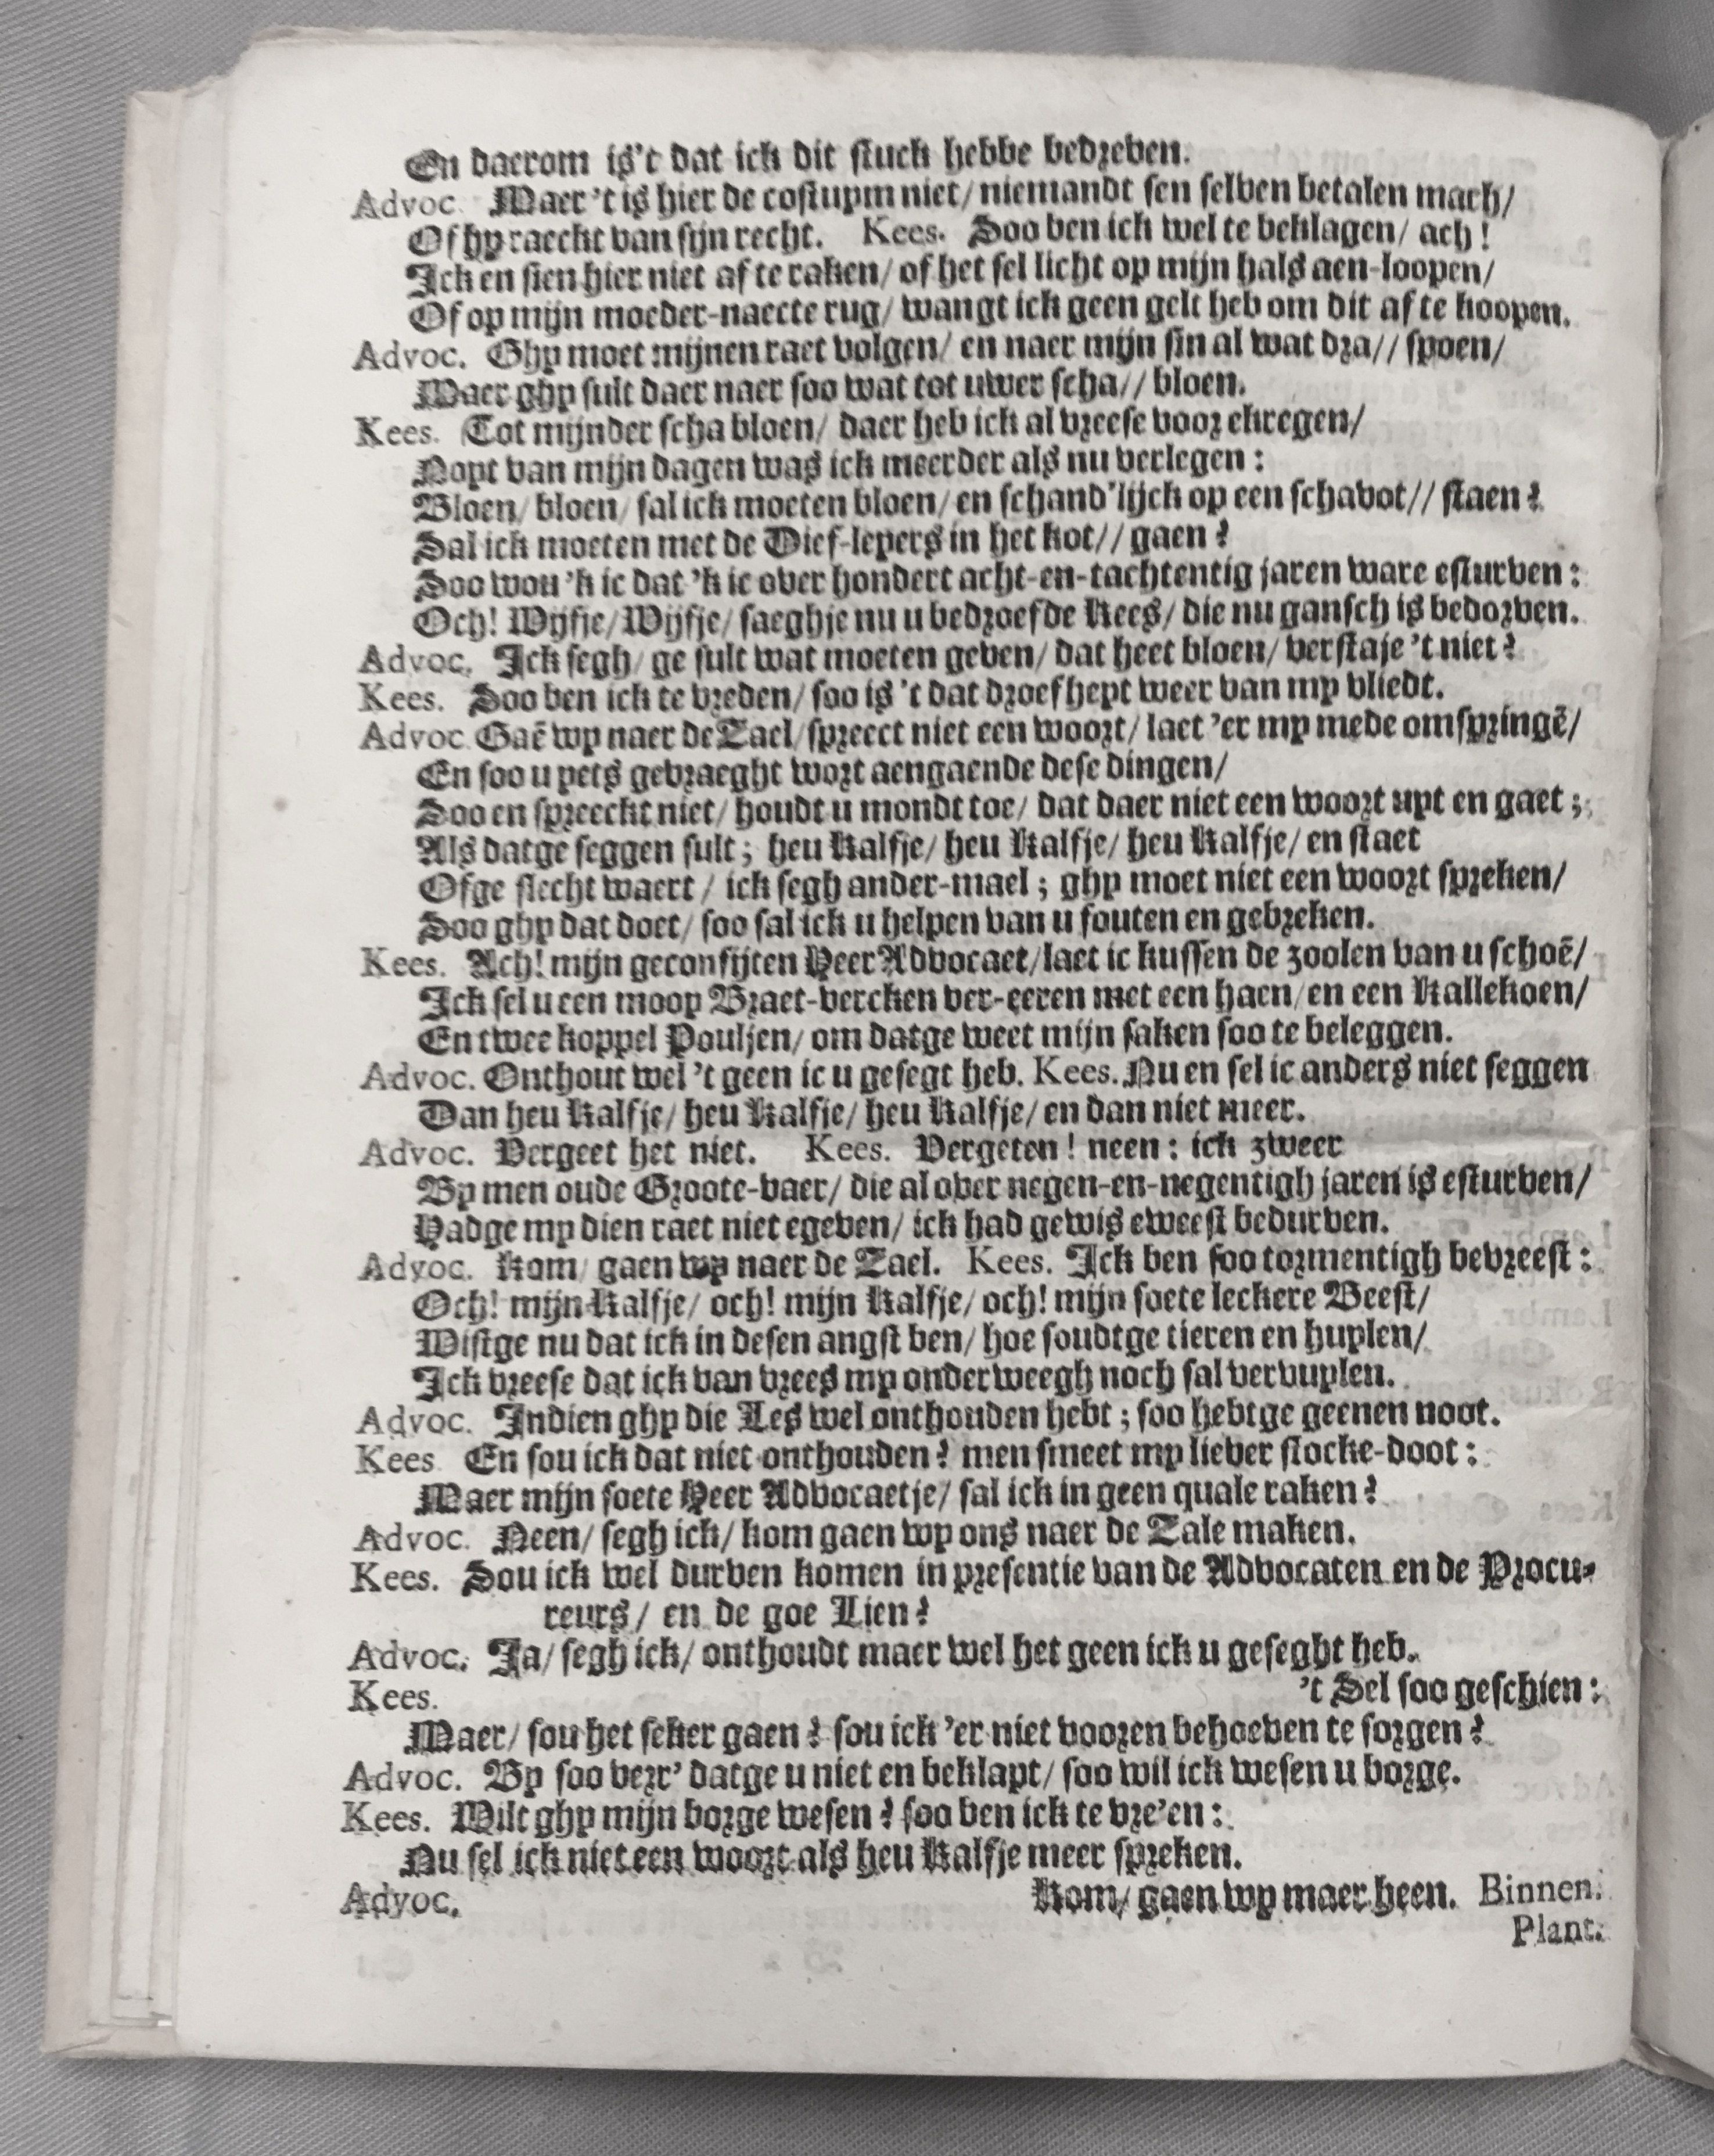 En daerom is't dat ick dit stuck hebbe bedreven.
Advoc. Maer 't is hier de costuym niet/ niemandt sen selven betalen mach/
Of hy raeckt van sijn recht. Kees. Soo ben ick wel te beklagen/ ach!
Ick en sien hier niet af te raken/ of het sel licht op mijn hals aen-loopen/
Of op mijn moeder-naecte rug/ wangt ick geen gelt heb om dit af te koopen.
Advoc. Ghy moet mijnen raet volgen/ en naer mijn sin al wat dra// spoen/
Maer ghy sult daer naer soo wat tot uwer scha// bloen.
Kees. Tot mijnder scha bloen/ daer heb ick al vreese voor ekregen/
Noyt van mijn dagen was ick meerder als nu verlegen:
Bloen/ bloen/ sal ick moeten bloen/ en schand'lijck op een schavot// staen?
Sal ick moeten met de Dief-leyers in het kot// gaen?
Soo wou 'k ic dat 'k ic over hondert acht-en-tachtentig jaren ware esturven:
Och! Wijfje/ Wijfje/ saeghje nu u bedroefde Kees/ die nu gansch is bedorven.
Advoc. Ick segh/ ge sult wat moeten geven/ dat heet bloen/ verstaje 't niet?
Kees. Soo ben ick te vreden/ soo is 't dat droefheyt weer van my vliedt.
Advoc. Gaē wy naer de Zael/ spreect niet een woort/ laet 'er my mede omspringē/
En soo u yets gevraeght wort aengaende dese dingen/
Soo en spreeckt niet/ houdt u mondt toe/ dat daer niet een woort uyt en gaet;
Als datge seggen sult; heu Kalfje/ heu Kalfje/ heu Kalfje/ en staet
Ofge slecht waert/ ick segh ander-mael; ghy moet niet een woort spreken/
Soo ghy dat doet/ soo sal ick u helpen van u fouten en gebreken.
Kees. Ach! mijn geconfijten Heer Advocaet/ laet ic kussen de zoolen van u schoē/
Ick sel u een mooy Braet-vercken ver-eeren met een haen/ en een Kallekoen/
En twee koppel Pouljen/ om datge weet mijn saken soo te beleggen.
Advoc. Onthout wel 't geen ic u gesegt heb. Kees. Nu en sel ic anders niet seggen
Dan heu Kalfje/ heu Kalfje/ heu Kalfje/ en dan niet meer.
Advoc. Vergeet het niet. Kees. Vergeten! neen: ick zweer
By men oude Groote-vaer/ die al over negen-en-negentigh jaren is esturven/
Hadge my dien raet niet egeven/ ick had gewis eweest bedurven.
Advoc. Kom/ gaen wy naer de Zael. Kees. Ick ben soo tormentigh bevreest:
Och! mijn Kalfje/ och! mijn Kalfje/ och! mijn soete leckere Beest/
Wistge nu dat ick in desen angst ben/ hoe soudtge tieren en huylen/
Ick vreese dat ick van vrees my onderweegh noch sal vervuylen.
Advoc. Indien ghy die Les wel onthouden hebt; soo hebtge geenen noot.
Kees. En sou ick dat niet onthouden? men smeet my liever stocke-doot:
Maer mijn soete Heer Advocaetje/ sal ick in geen quale raken?
Advoc. Neen/ segh ick/ kom gaen wy ons naer de Zale maken.
Kees. Sou ick wel durven komen in presentie van de Advocaten en de Procu-
reurs/ en de goe Lien?
Advoc. Ja/ segh ick/ onthoudt maer wel het geen ick u geseght heb.
Kees. 't Sel soo geschien:
Maer/ sou het seker gaen? sou ick 'er niet vooren behoeven te sorgen?
Advoc. By soo verr' datge u niet en beklapt/ soo wil ick wesen u borge.
Kees. Wilt ghy mijn borge wesen? soo ben ick te vre'en:
Nu sel ick niet een woort als heu Kalfje meer spreken.
Advoc. Kom/ gaen wy maer heen. Binnen.
Plant.